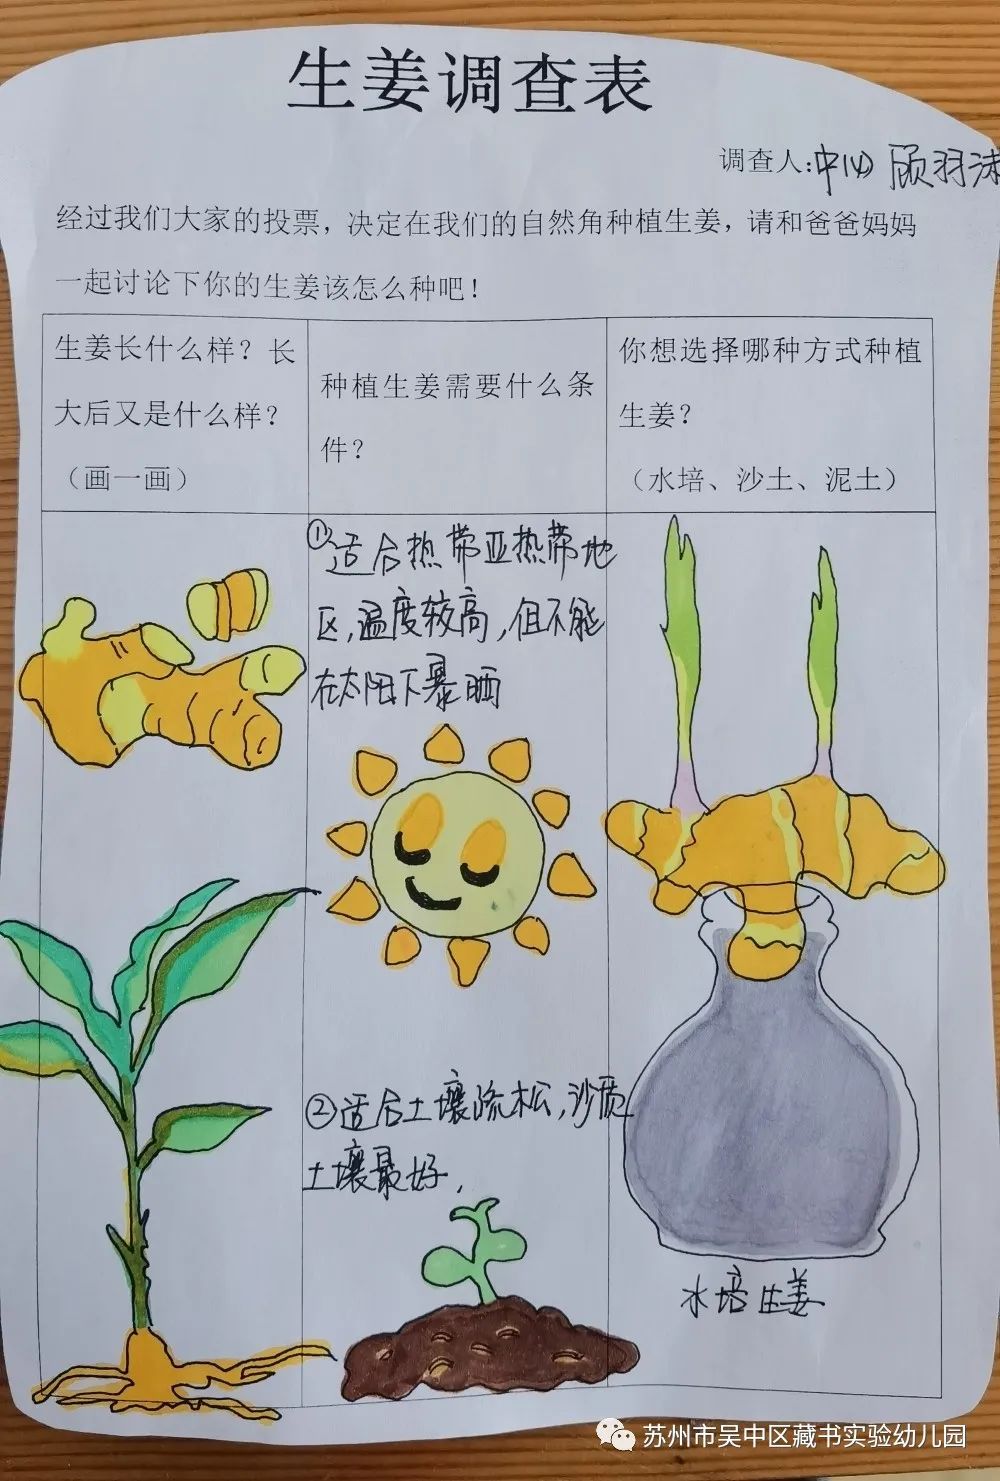 生姜调查表
调查人:中(4) 顾羽沫
经过我们大家的投票，决定在我们的自然角种植生姜，请和爸爸妈妈
一起讨论下你的生姜该怎么种吧！
生姜长什么样？长
大后又是什么样？
（画一画）
种植生姜需要什么条
件？
你想选择哪种方式种植
生姜？
（水培、沙土、泥土）
①适合热带亚热带地
区,温度较高,但不能
在太阳下暴晒
②适合土壤疏松,沙质
土壤最好,
水培生姜
苏州市吴中区藏书实验幼儿园